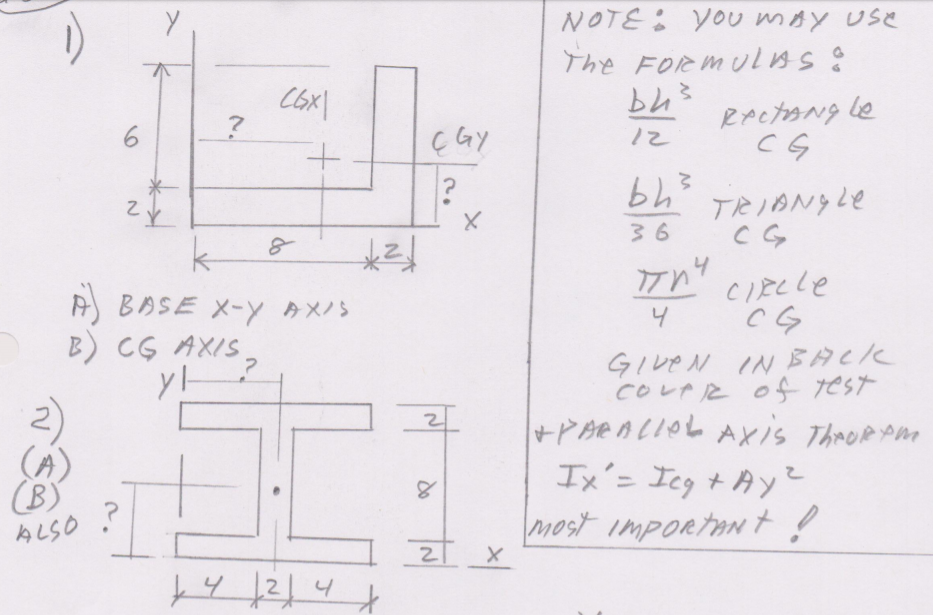 1)
Y
CGX
6
?
CGY
?
2
X
8
2
A) BASE X-Y AXIS
B) CG AXIS
Y
?
2)
2
(A)
(B)
8
ALSO
?
2
X
4
2
4
NOTE: YOU MAY USE
THE FORMULAS:
bh³/12 RECTANGLE
CG
bh³/36 TRIANGLE
CG
πr⁴/4 CIRCLE
CG
GIVEN IN BACK
COVER OF TEST
+ PARALLEL AXIS THEOREM
Ix' = Icg + Ay²
MOST IMPORTANT!